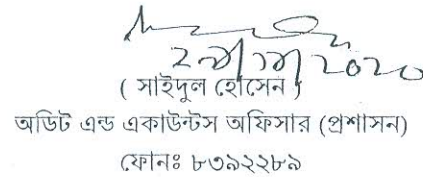 ( সাইদুল হোসেন )
অডিট এন্ড একাউন্টস অফিসার (প্রশাসন)
ফোনঃ ৮৩৯২২৮৯